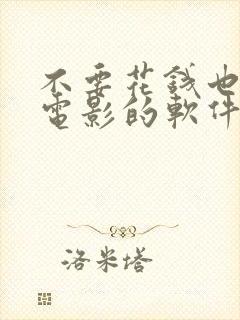 不要花錢也
電影的軟件
洛米塔